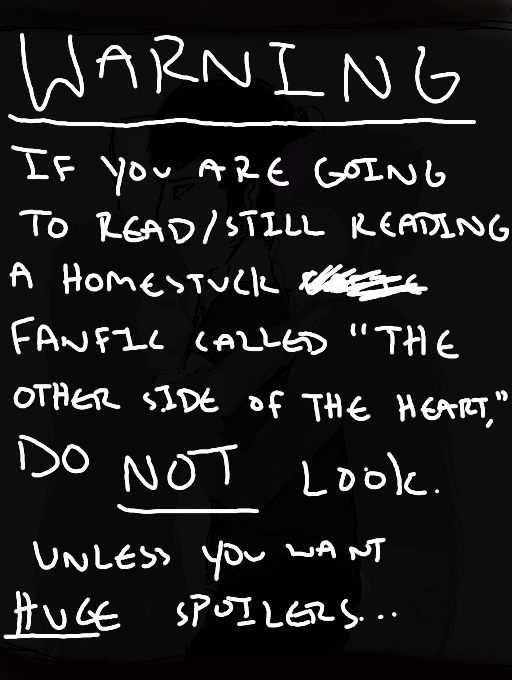 WARNING
IF YOU ARE GOING
TO READ/STILL READING
A HOMESTUCK
FANFIC CALLED "THE
OTHER SIDE OF THE HEART,"
DO NOT LOOK.
UNLESS YOU WANT
HUGE SPOILERS...